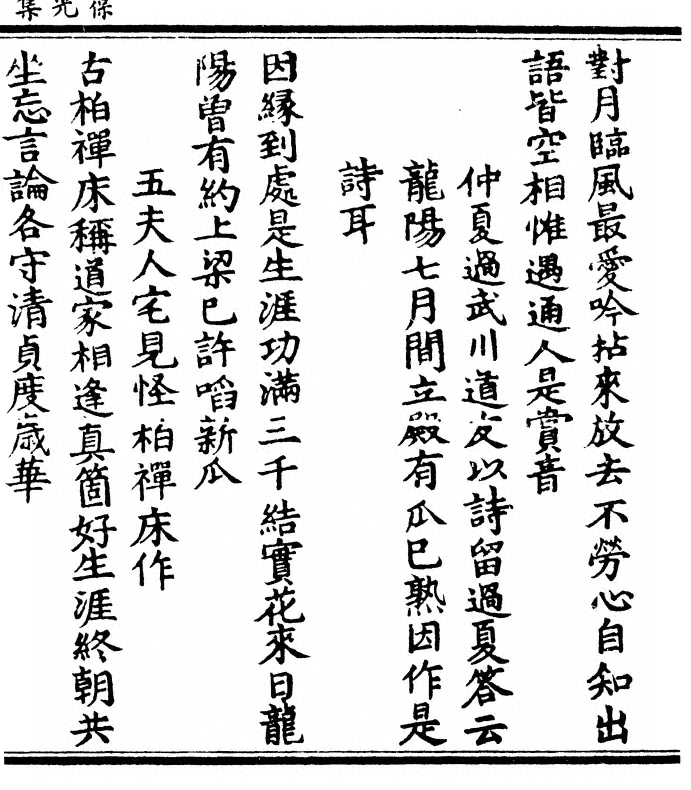 葆光集
對月臨風最愛吟拈來放去不勞心自知出
語皆空相惟遇通人是賞音
仲夏過武川道友以詩留過夏答云
龍陽七月間立殿有瓜已熟因作是
詩耳
因緣到處是生涯功滿三千結實花來日龍
陽曾有約上梁已許啗新瓜
五夫人宅見怪柏禪床作
古柏禪床稱道家相逢真箇好生涯終朝共
坐忘言論各守清貞度歲華